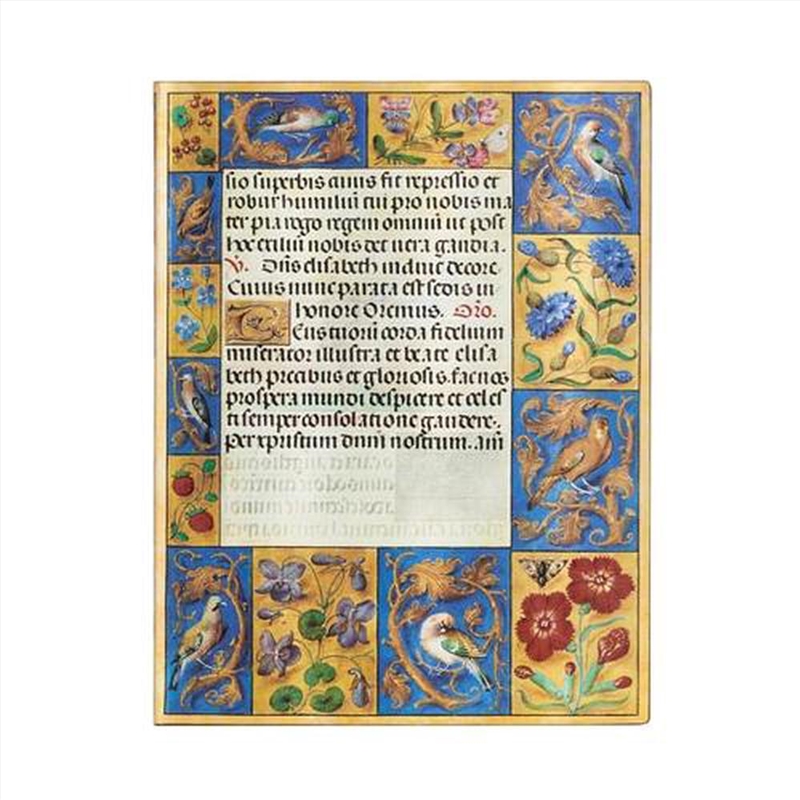 sio superbis cuius fit repressio et
robur humiliũ cui pro nobis ma
ter pia rogo regem omniũ ut post
hoc exiliũ nobis det uera gaudia.
V. Diis elisabeth induit decore
Cuius nunc parata est sedis in
honore Oremus. Oro.
Eus tuorũ corda fidelium
miserator illustra et beate elisa
beth precibus et gloriosis. fac nos
prospera mundi despicere et celes
ti semper consolatione gaudere.
per xpristum dnm̃ nostrum. am̃